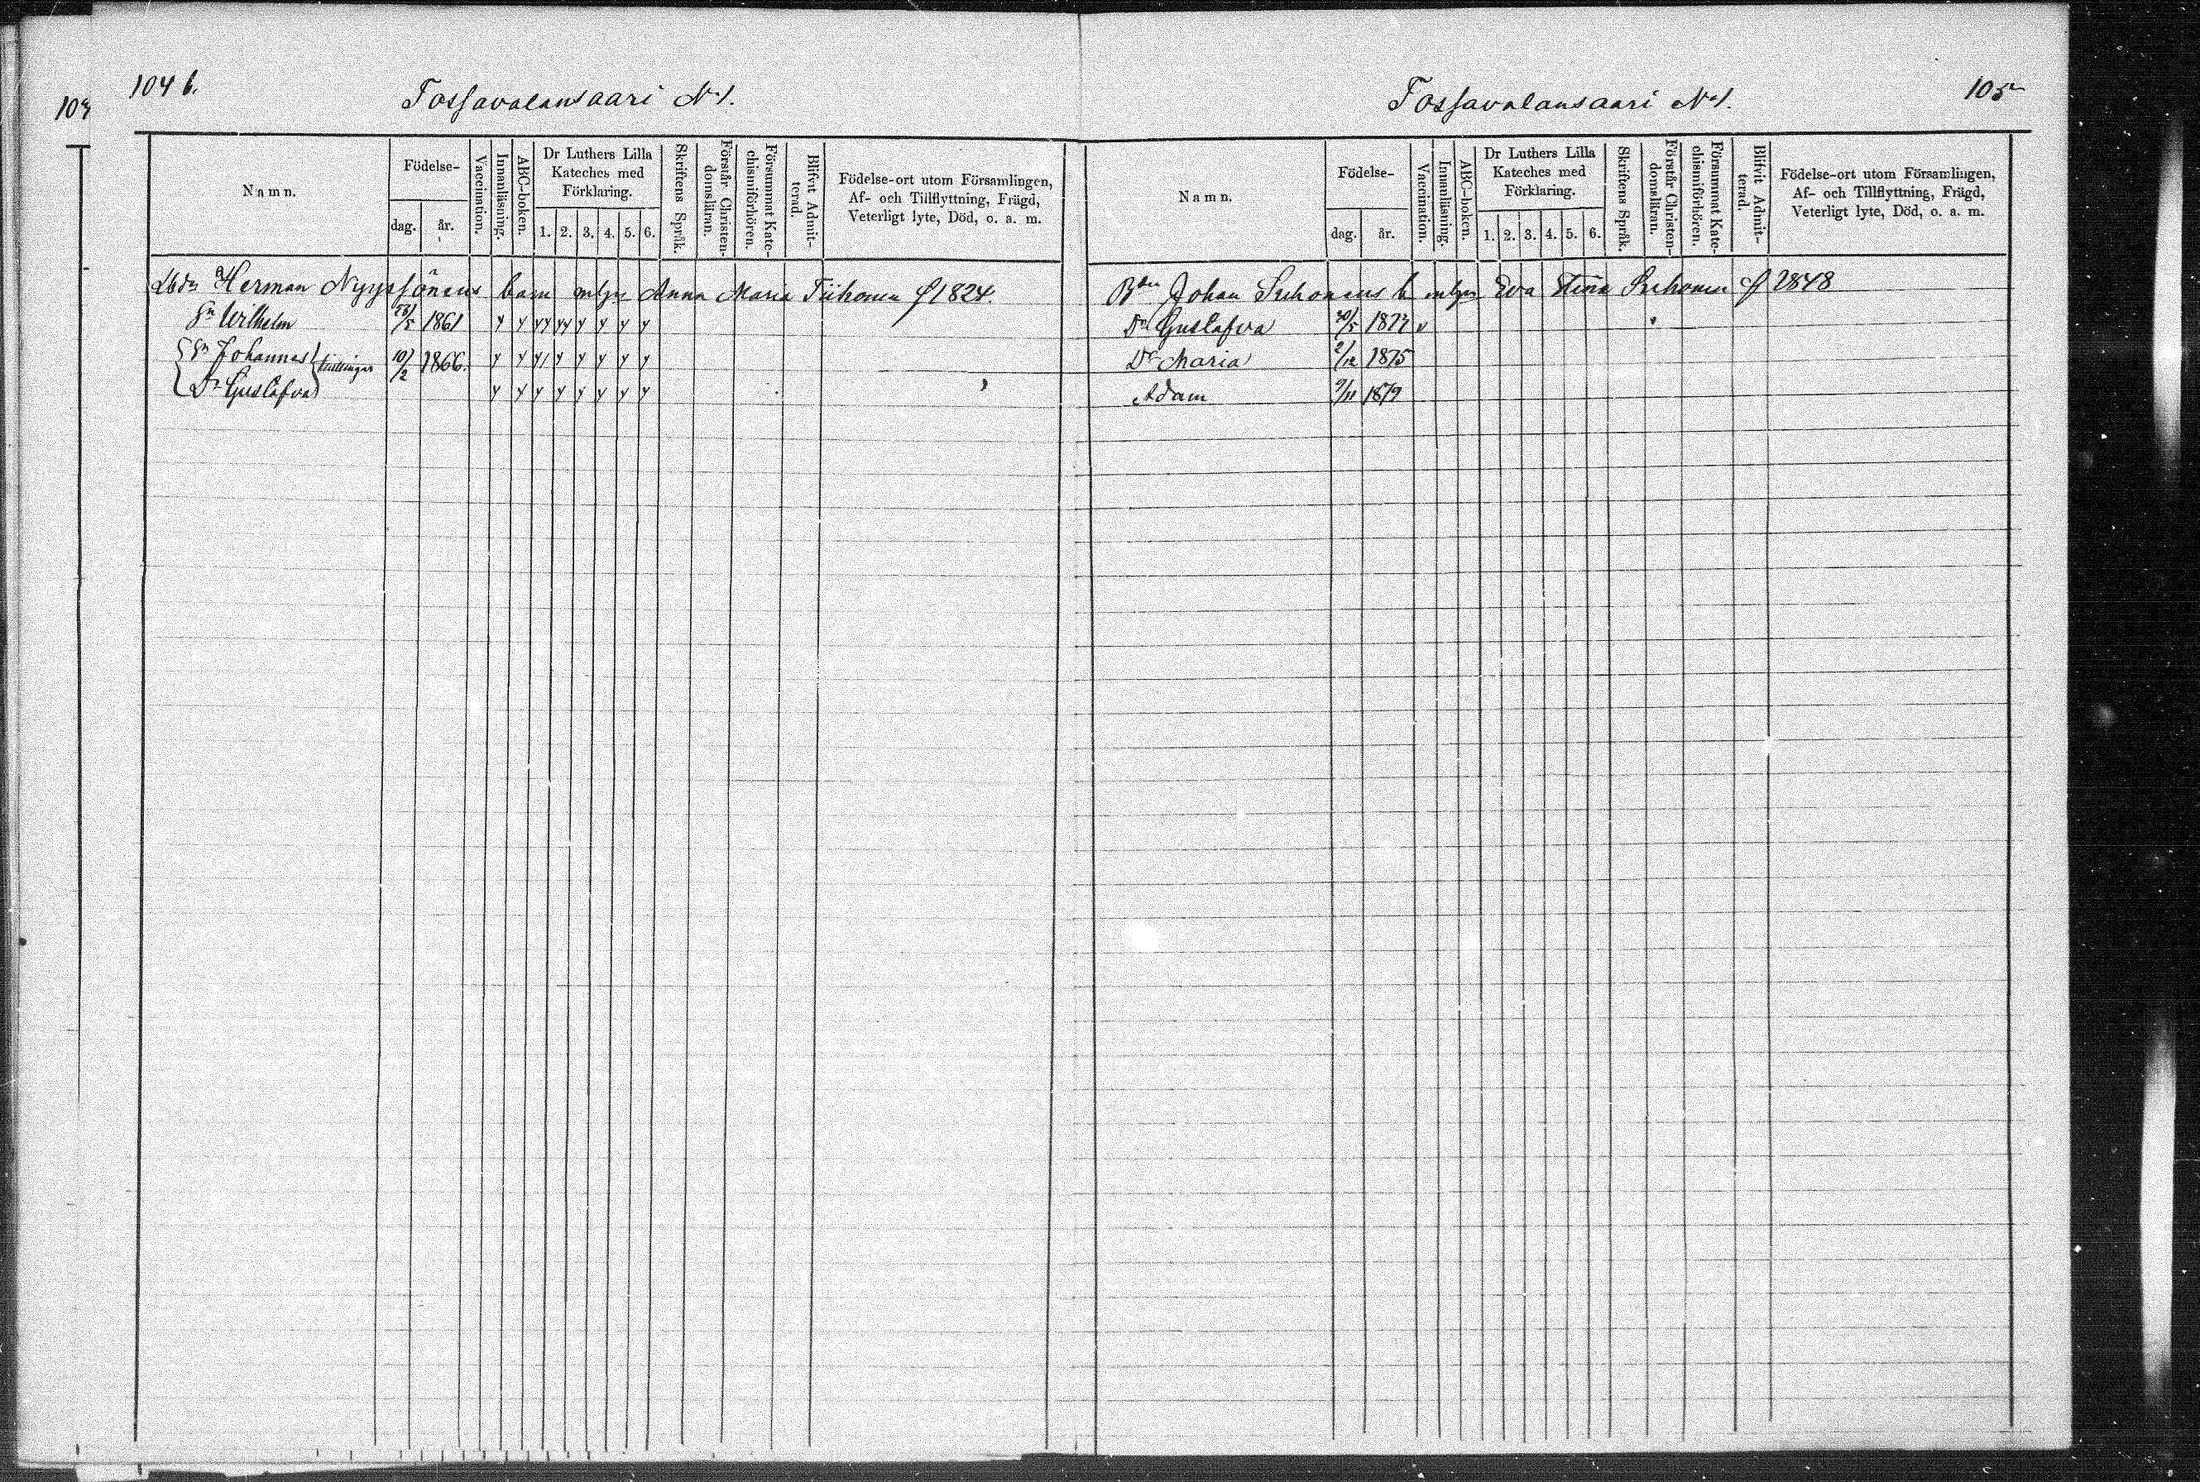 104 b.
Tossavalansaari No 1.
Namn.
Födelse-
dag.
år.
Vaccination.
Innanläsning.
ABC-boken.
Dr Luthers Lilla
Kateches med
Förklaring.
1. 2. 3. 4. 5. 6.
Skriftens Språk.
Förstår Christen-
domsläran.
Försummat Kate-
chismiförhören.
Blifvit Admit-
terad.
Födelse-ort utom Församlingen,
Af- och Tillflyttning, Frägd,
Veterligt lyte, Död, o. a. m.
Herman Nyyssönens barn Anna Maria Tiihonen f 1824.
Sn Wilhelm 1861
Sn Johannes 10/2 1866.
Dr Gustafva
Tossavalansaari No 1.
105
Namn.
Födelse-
dag.
år.
Vaccination.
Innanläsning.
ABC-boken.
Dr Luthers Lilla
Kateches med
Förklaring.
1. 2. 3. 4. 5. 6.
Skriftens Språk.
Förstår Christen-
domsläran.
Försummat Kate-
chismiförhören.
Blifvit Admit-
terad.
Födelse-ort utom Församlingen,
Af- och Tillflyttning, Frägd,
Veterligt lyte, Död, o. a. m.
Johan Suhonens b Eva Stina f 1848
Dr Gustafva 30/5
Dr Maria 2/12 1875
Adam 9/11 1879